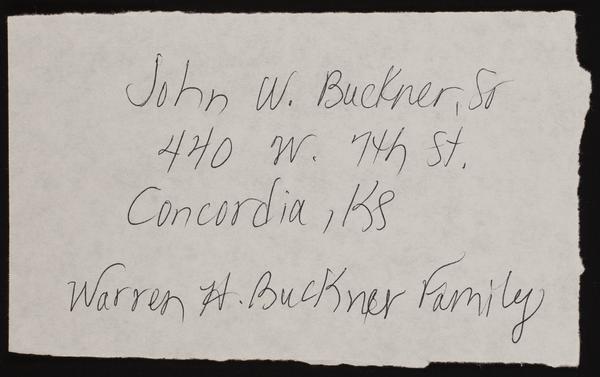 John W. Buckner, Sr
440 W. 7th St.
Concordia, KS
Warren H. Buckner Family